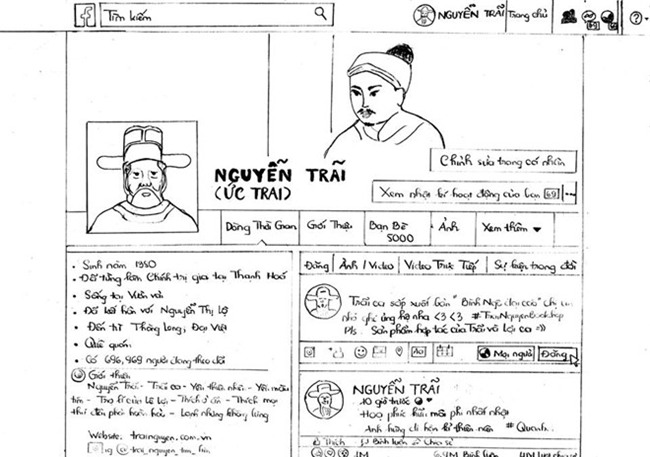 f Tìm kiếm
NGUYỄN TRÃI Trang chủ
Chỉnh sửa trang cá nhân
NGUYỄN TRÃI
(ỨC TRAI)
Xem nhật kí hoạt động của bạn
Dòng Thời Gian
Giới Thiệu
Bạn Bè
5000
Ảnh
Xem thêm
Sinh năm 1380
Đã từng làm Chính trị gia tại Thanh Hoá
Sống tại Vườn vải
Đã kết hôn với Nguyễn Thị Lộ
Đến từ Thăng Long, Đại Việt
Quê quán:
Có 696,969 người đang theo dõi
Giới thiệu
Nguyễn Trãi - Trãi ca - Yêu thiên nhiên - Yêu màu
tím - Thơ kí của Lê Lợi - Thích ở ẩn - Thích mọi
thứ đều phải hoàn hảo - Lạnh nhưng không lùng
Website: trainguyen.com.vn
ig @trai_nguyen_tim_lim
Đăng Ảnh / Video Video Trực Tiếp Sự kiện trong đời
Trãi ca sắp xuất bản "Bình Ngô đại cáo" chị em
nhớ ghé ủng hộ nha <3 <3 #TraiNguyenBookshop
P/s: Sản phẩm hợp tác của Trãi và Lợi ca =))
Mọi người Đăng
NGUYỄN TRÃI
10 giờ trước
Hoạ phúc hữu môi phi nhất nhật
Anh hùng di hận kỉ thiên niên #Quanh..
Thích Bình luận Chia sẻ